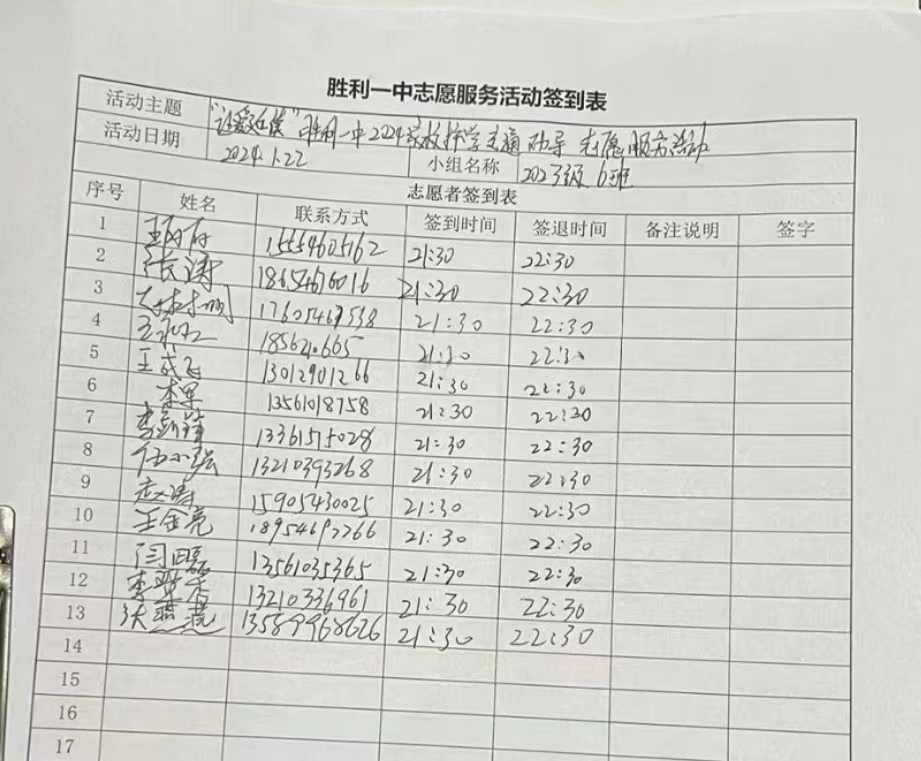 胜利一中志愿服务活动签到表
活动主题 胜利一中2024家校护学交通劝导志愿服务活动
活动日期 2024.1.22 小组名称 2023级6班
志愿者签到表
序号 姓名 联系方式 签到时间 签退时间 备注说明 签字
1 15554605162 21:30 22:30
2 张涛 18654676016 21:30 22:30
3 21:30 22:30
4 21:30 22:30
5 王成飞 13012901266 21:30 22:30
6 李军 13561018758 21:30 22:30
7 13361515028 21:30 22:30
8 13210393268 21:30 22:30
9 赵涛 15905430025 21:30 22:30
10 王金亮 21:30 22:30
11 闫国磊 13561035365 21:30 22:30
12 13210336961 21:30 22:30
13 张燕燕 13589968626 21:30 22:30
14
15
16
17